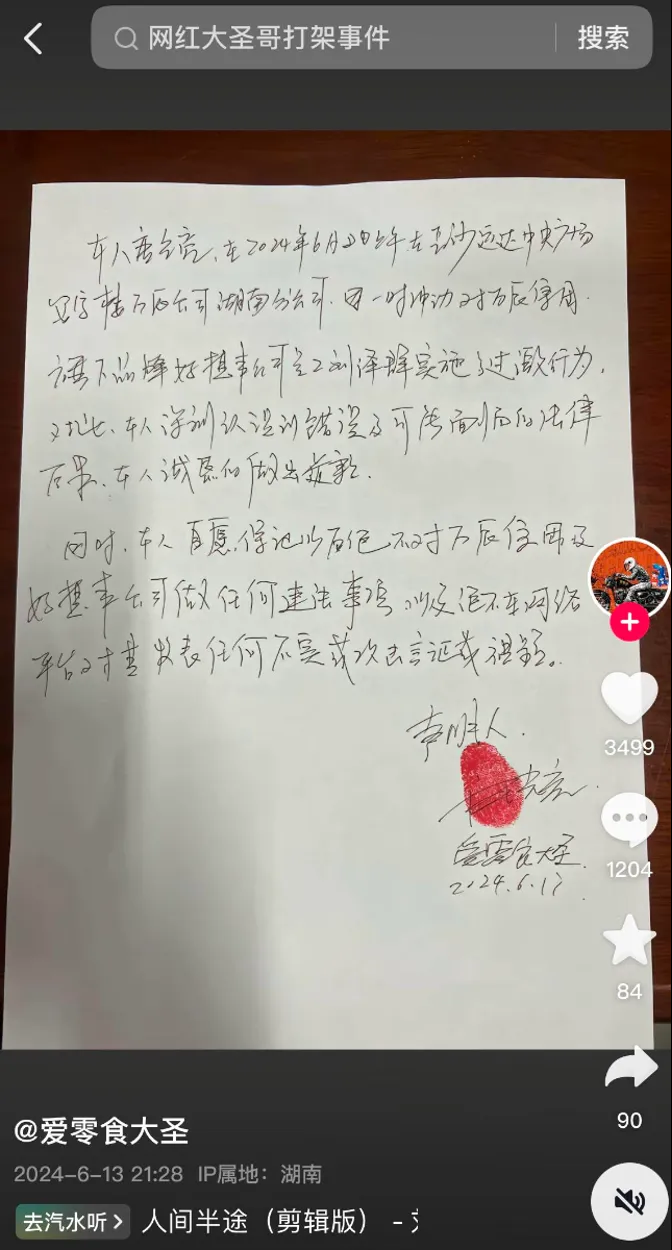 网红大圣哥打架事件
搜索
本人唐全亮,在2024年6月 在长沙运达中央广场
写字楼万辰公司湖南分公司.因一时冲动对万辰集团
旗下品牌好想来公司员工刘泽辉实施了过激行为,
对此、本人深刻认识到错误及可能面临的法律
后果、本人诚恳的做出道歉.
同时.本人自愿保证以后绝不对万辰集团及
好想来公司做任何违法事项,以及绝不在网络
平台对其发表任何不实或攻击言论或视频。
声明人.
爱零食大圣
2024.6.
3499
1204
84
90
@爱零食大圣
2024-6-13 21:28 IP属地:湖南
去汽水听 > 人间半途(剪辑版) -